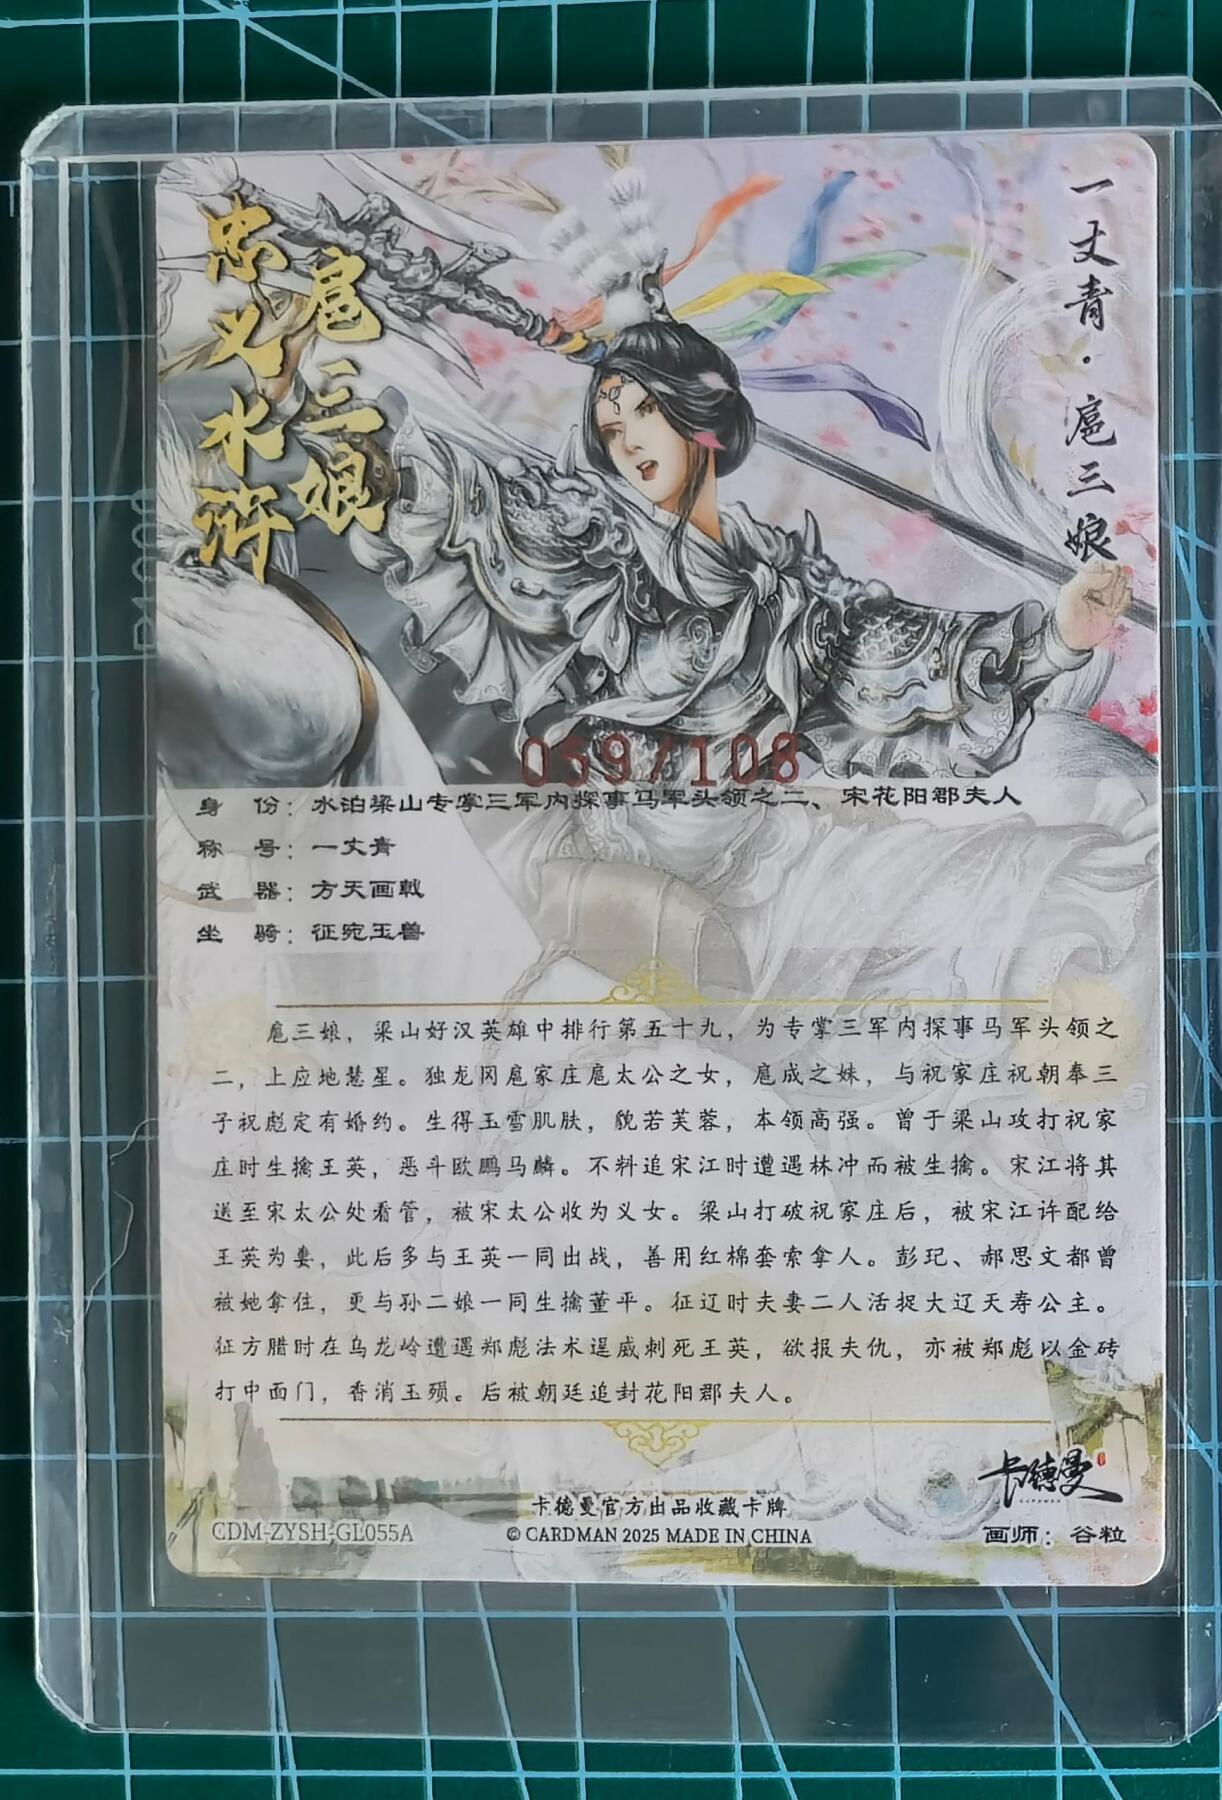 忠义水浒
扈三娘
一丈青·扈三娘
059/108
身 份：水泊梁山专掌三军内探事马军头领之二、宋花阳郡夫人
称 号：一丈青
武 器：方天画戟
坐 骑：征宛玉兽
扈三娘，梁山好汉英雄中排行第五十九，为专掌三军内探事马军头领之
二，上应地慧星。独龙冈扈家庄扈太公之女，扈成之妹，与祝家庄祝朝奉三
子祝彪定有婚约。生得玉雪肌肤，貌若芙蓉，本领高强。曾于梁山攻打祝家
庄时生擒王英，恶斗欧鹏马麟。不料追宋江时遭遇林冲而被生擒。宋江将其
送至宋太公处看管，被宋太公收为义女。梁山打破祝家庄后，被宋江许配给
王英为妻，此后多与王英一同出战，善用红棉套索拿人。彭玘、郝思文都曾
被她拿住，更与孙二娘一同生擒董平。征辽时夫妻二人活捉大辽天寿公主。
征方腊时在乌龙岭遭遇郑彪法术逞威刺死王英，欲报夫仇，亦被郑彪以金砖
打中面门，香消玉殒。后被朝廷追封花阳郡夫人。
卡德曼
CARDMAN
卡德曼官方出品收藏卡牌
CDM-ZYSH-GL055A
© CARDMAN 2025 MADE IN CHINA
画师：谷粒